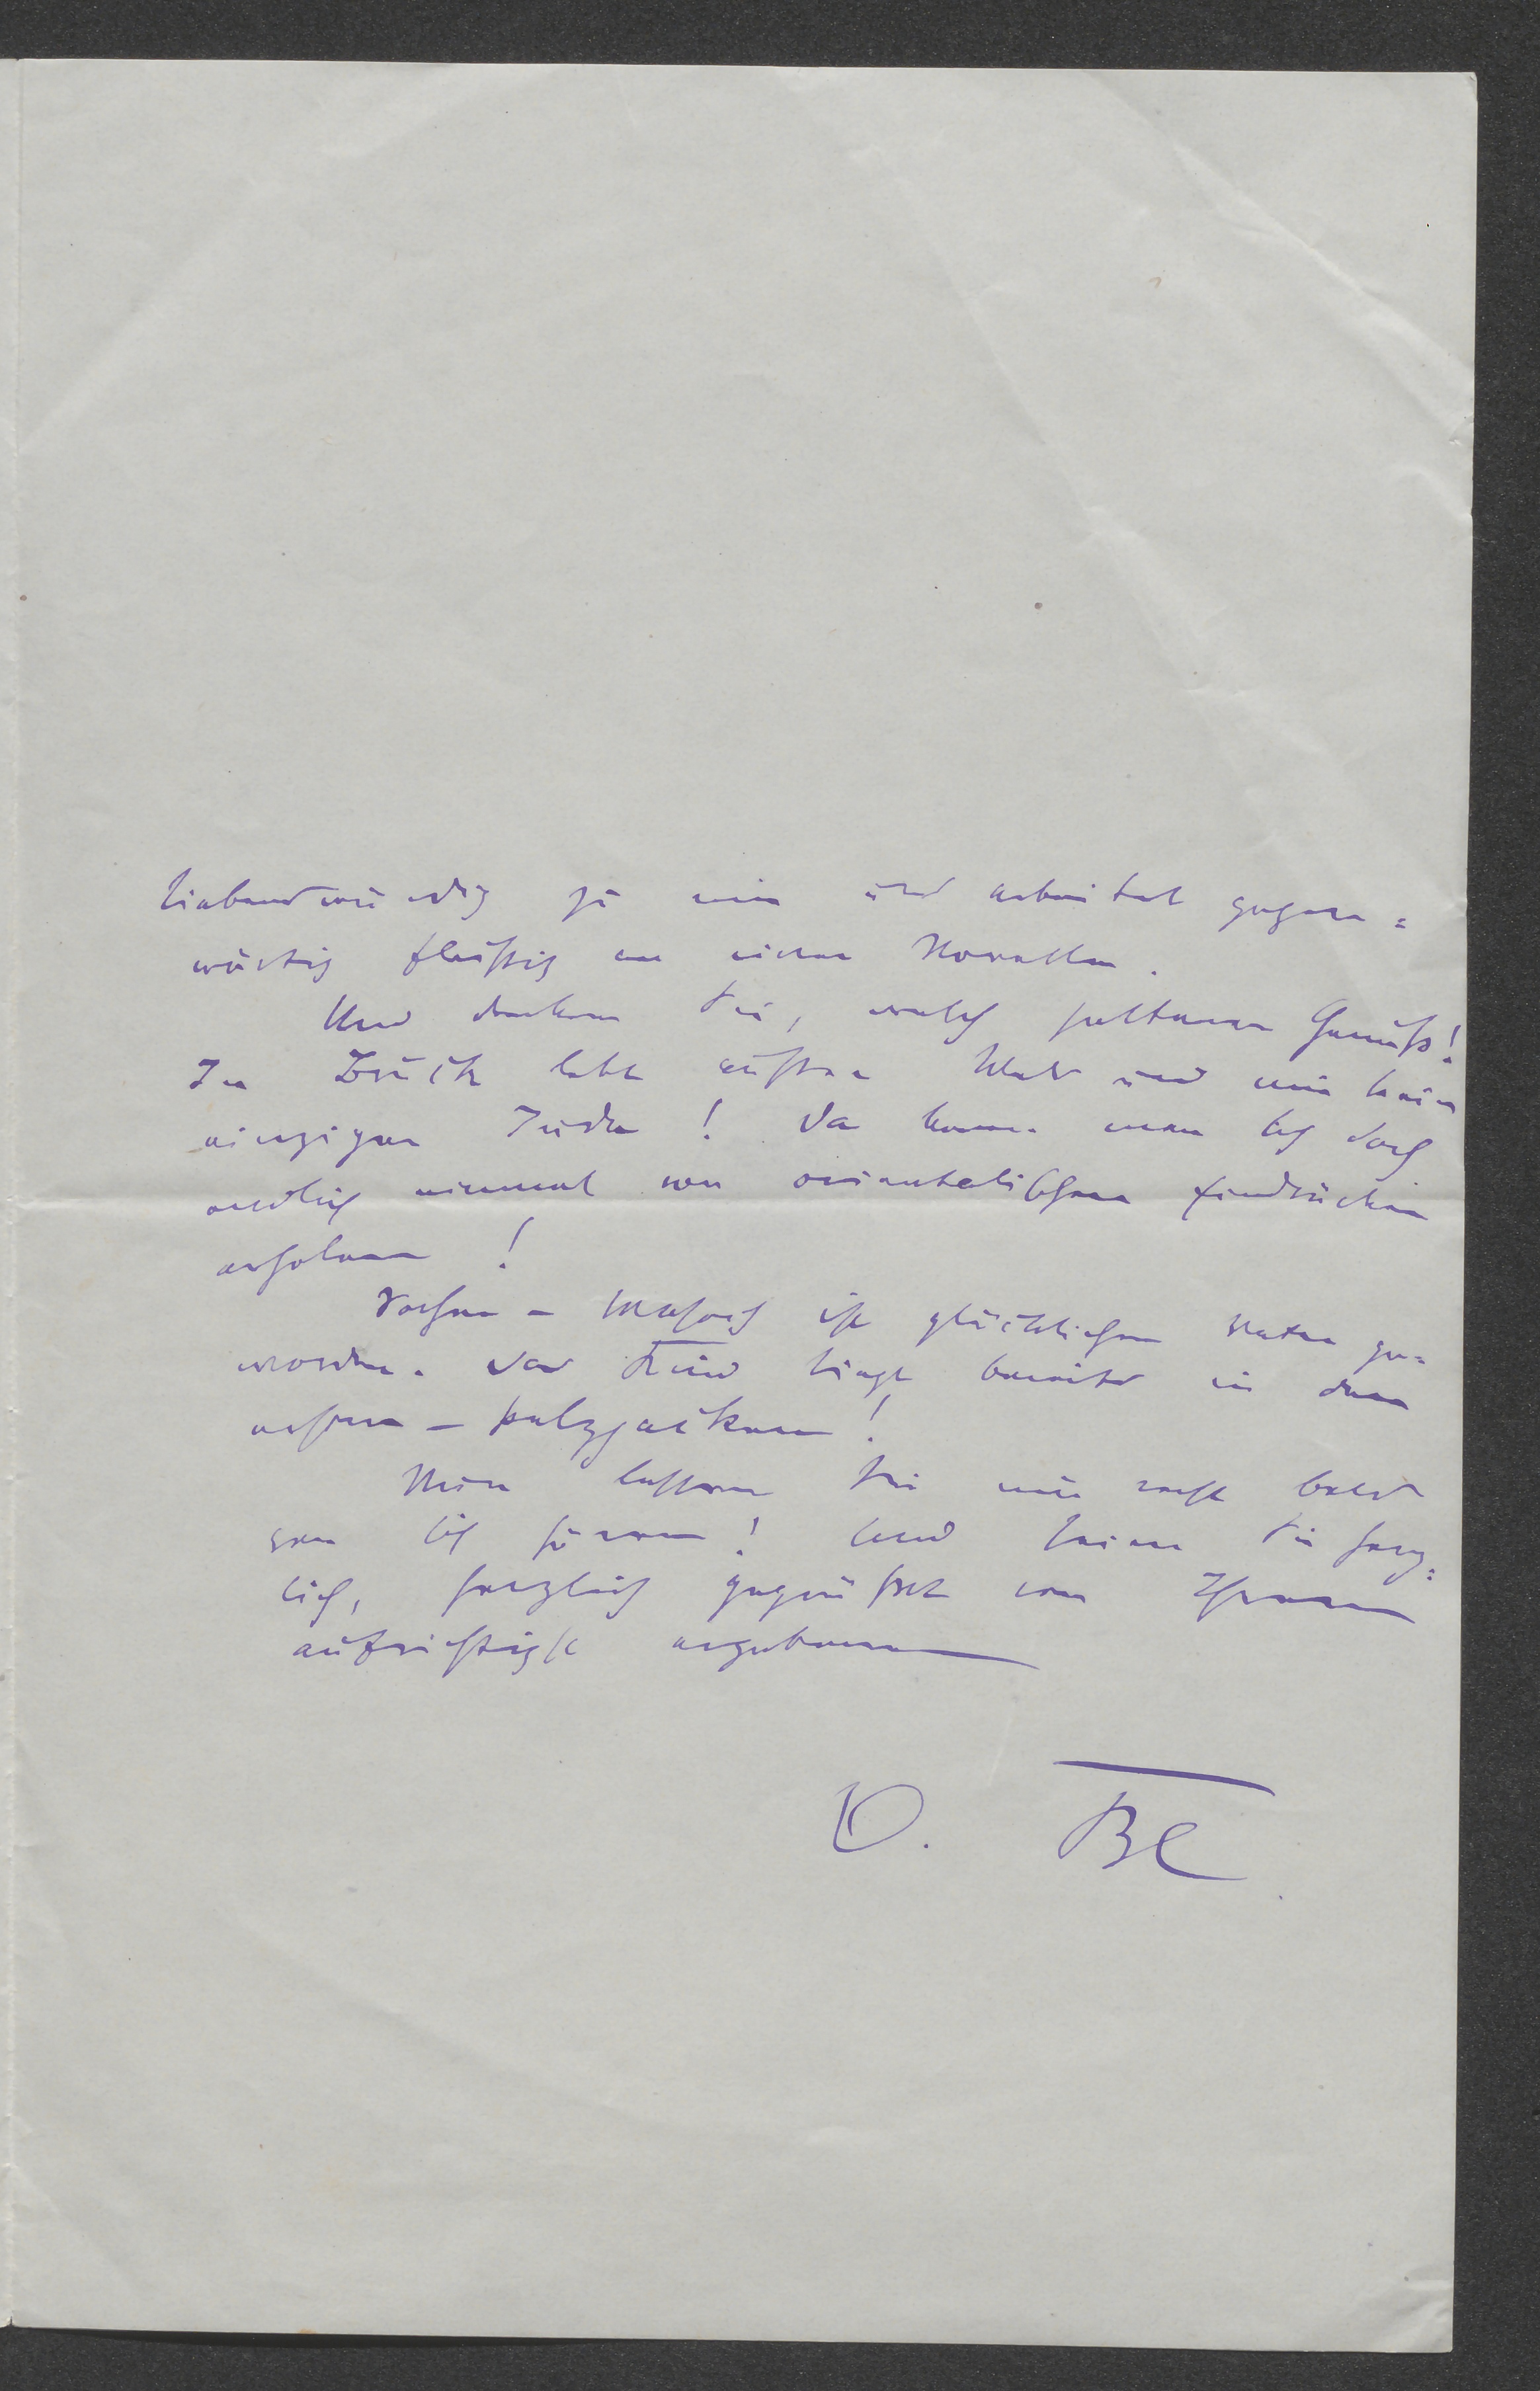 liebenswürdig zu mir und arbeitet gegen=
wärtig fleißig an einer Novelle.
Und denken Sie, welch seltener Genuß!
In Bruck lebt außer und mir kein
einziger Jude! Da kann man sich doch
endlich einmal von orientalischen Eindrücken
erholen!
Sacher-Masoch ist glücklicher Vater ge=
worden. Das Kind liegt bereits in den
ersten - Pelzjacken!
Nun lassen Sie mir recht bald
von sich hören! Und seien Sie herz=
lich, herzlich gegrüßt von Ihrem
aufrichtigst ergebenen